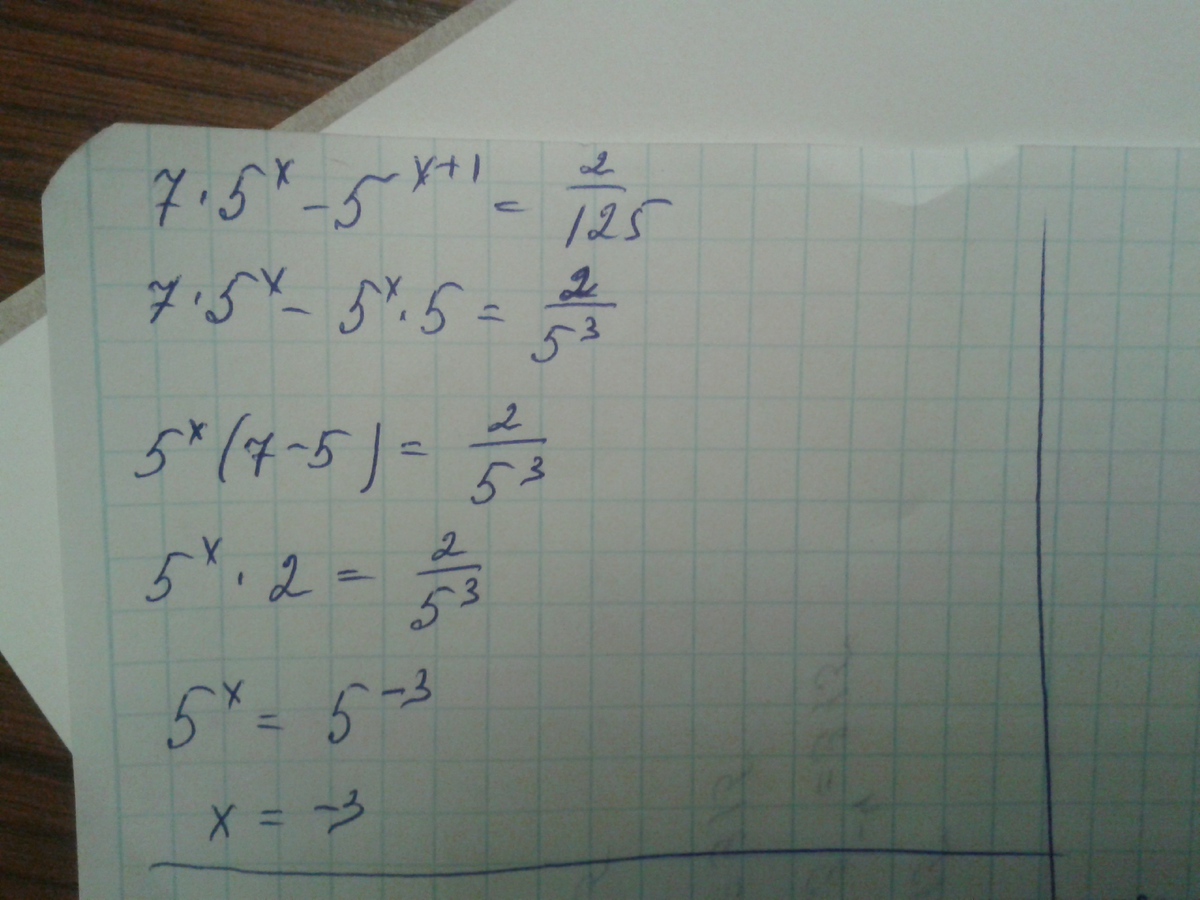 7·5^x - 5^(x+1) = 2/125
7·5^x - 5^x·5 = 2/5^3
5^x(7-5) = 2/5^3
5^x·2 = 2/5^3
5^x = 5^-3
x = -3